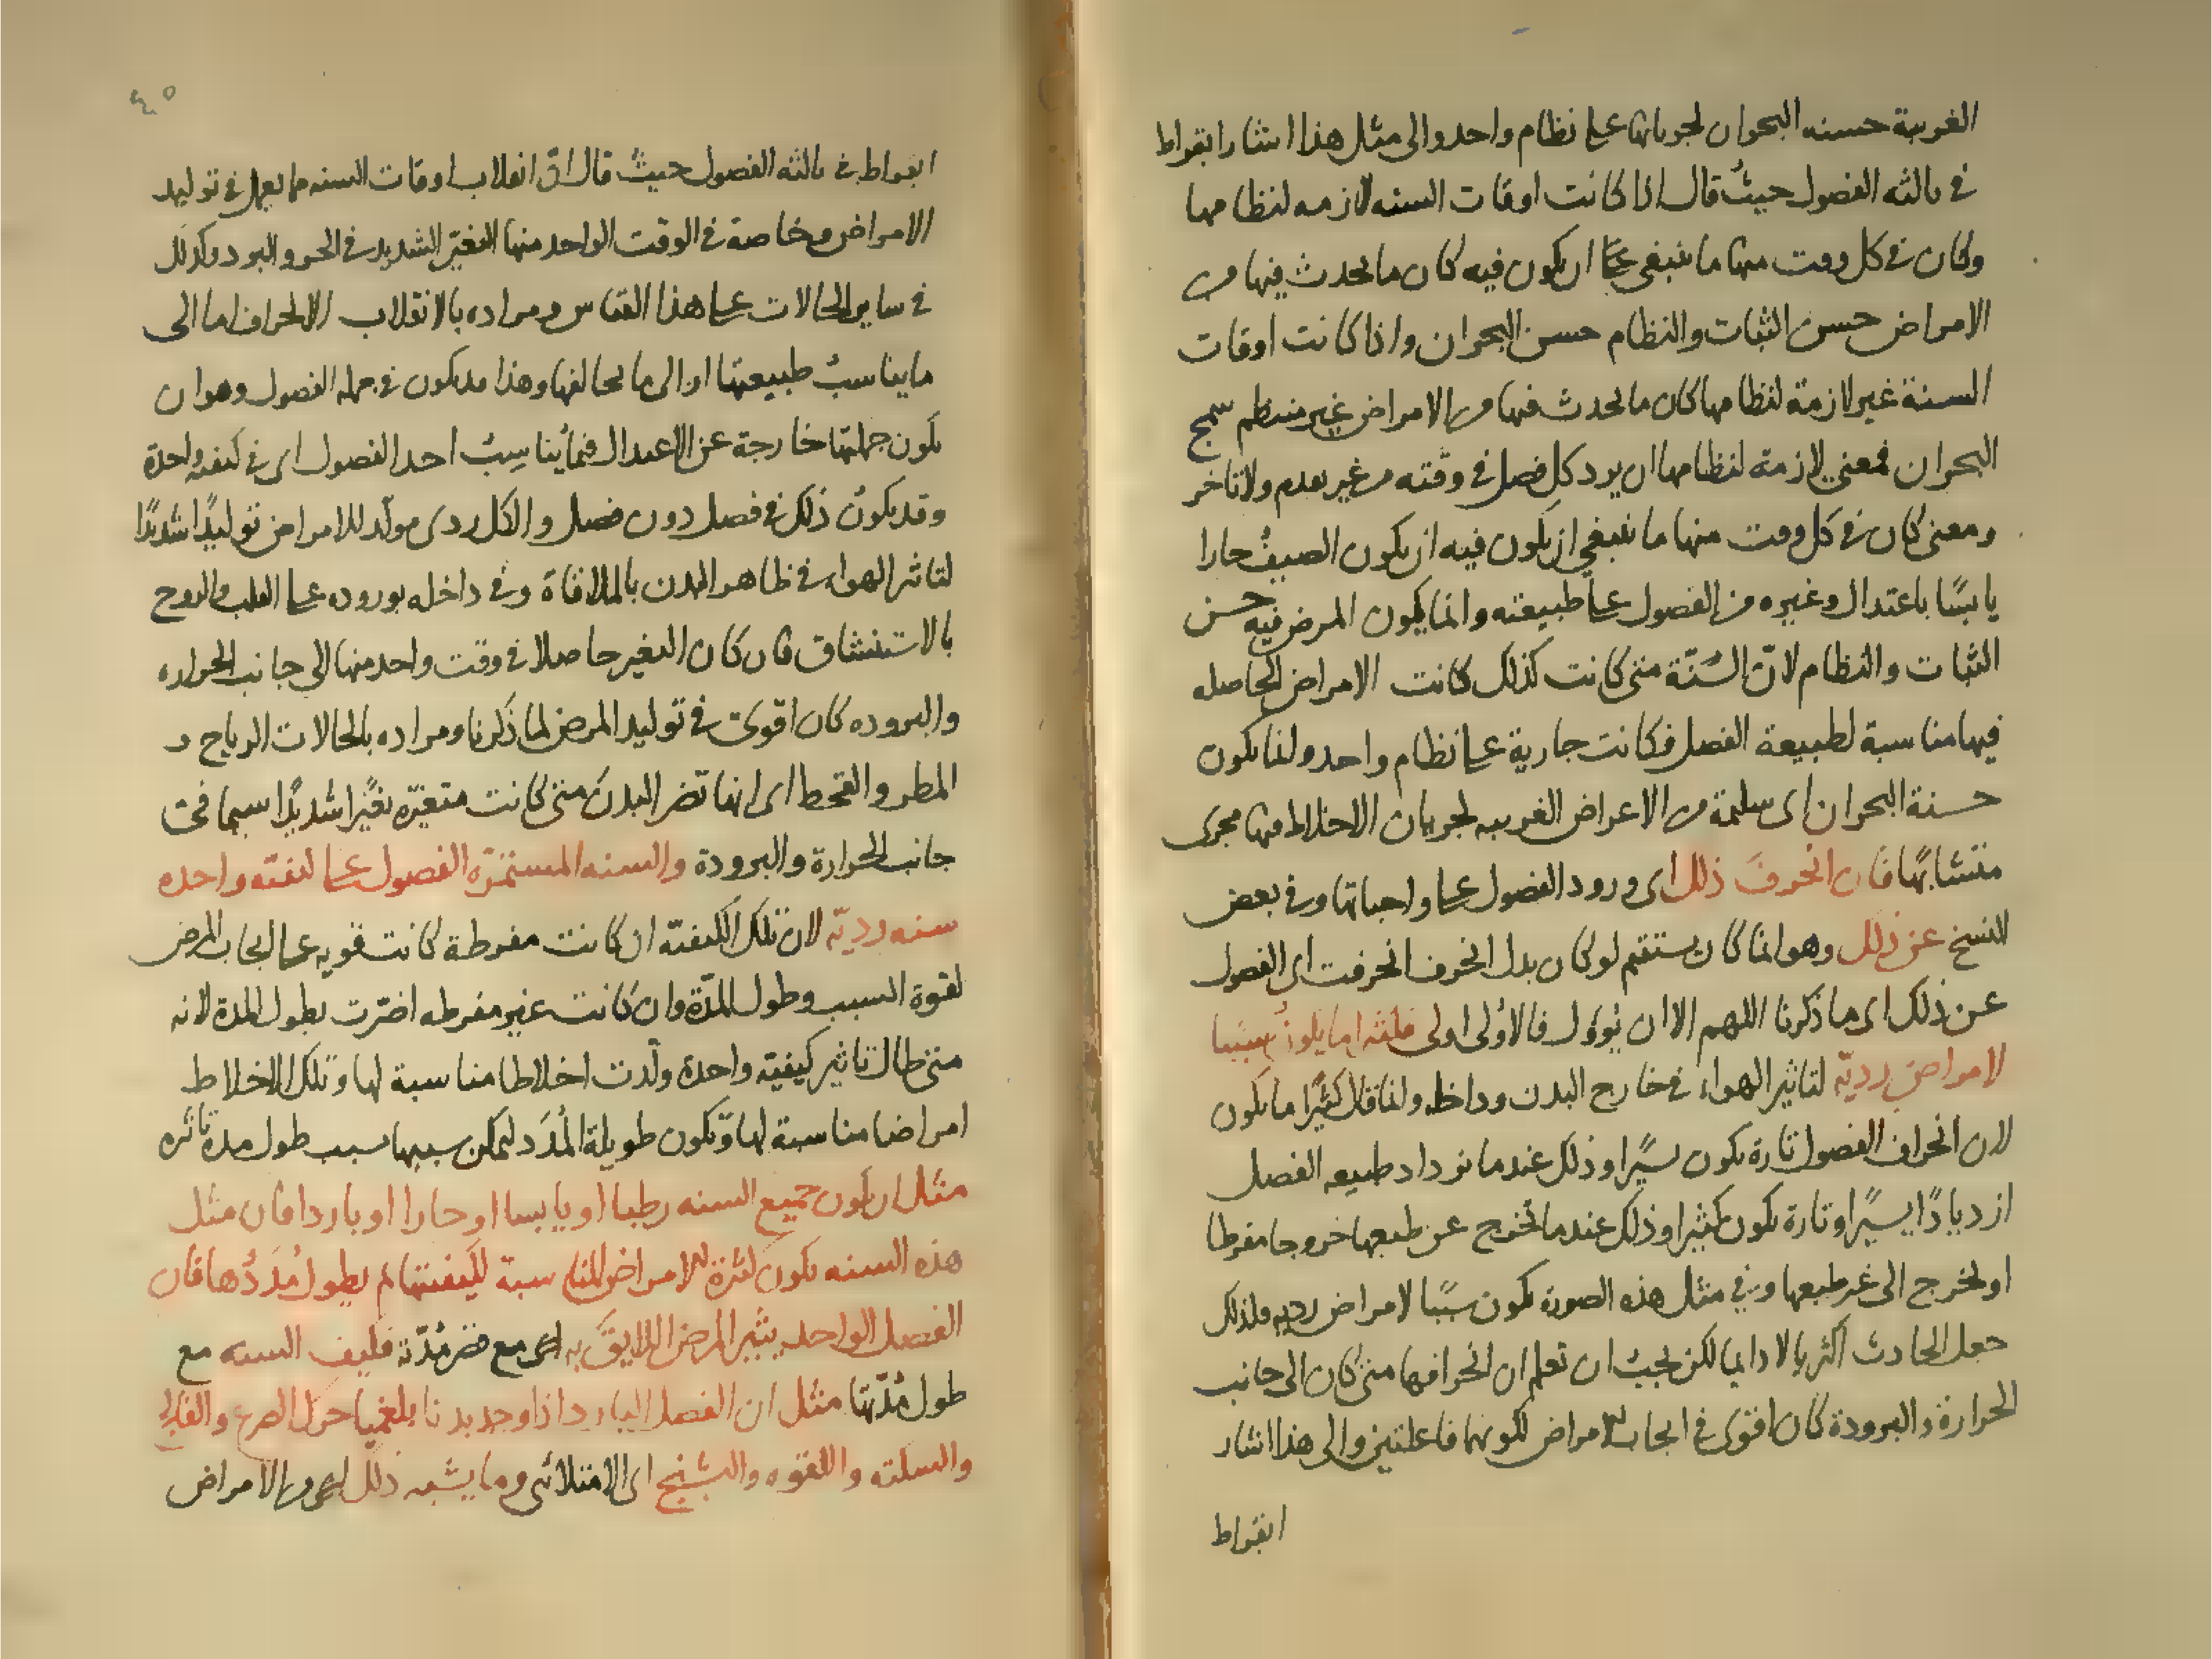 الغريبة حسنه البحران لجريانها على نظام واحد والى مثل هذا اشار ابقراط
في ثالثه الفصول حيث قال اذا كانت اوقات السنه لازمه لنظامها
وكان في كل وقت منها ما ينبغى ان يكون فيه كان ما يحدث فيها من
الامراض حسن الثبات والنظام حسن البحران واذا كانت اوقات
السنة غير لازمة لنظامها كان ما يحدث فيها من الامراض غير منتظم سمج
البحران فمعنى لازمة لنظامها ان يرد كل فصل في وقته من غير تقدم ولا تاخر
ومعنى كان في كل وقت منها ما ينبغي ان يكون فيه ان يكون الصيف حارا
يابسًا باعتدال وغيره من الفصول على طبيعته وانما يكون المرض فيه حسن
الثبات والنظام لانّ السّنّة متى كانت كذلك كانت الامراض الحاصله
فيها مناسبة لطبيعة الفصل فكانت جارية على نظام واحد ولنا يكون
حسنة البحران اى سليمة من الاعراض الغريبه لجريان الاخلاط فيها مجرى
متشابهًا فان انحرف ذلك اى ورود الفصول على واجباتها وفي بعض
النسخ عن ذلك وهو انما كان يستقيم لو كان بدل انحرف انحرفت اى الفصول
عن ذلك اى ما ذكرنا اللهم الا ان نوول فالاولى اولى فلثه اما يكون سببا
لامراض رديّه لتاثير الهواء في خارج البدن وداخله ولنا قال كثيرًا ما يكون
لان انحراف الفصول تارة يكون يسيرًا وذلك عندما تزداد طبيعه الفصل
ازديادًا يسيرًا وتارة يكون كثيرا وذلك عندما تخرج عن طبعها خروجا مفرطا
او تخرج الى غير طبعها وفي مثل هذه الصورة يكون سببًا لامراض رديه ولذلك
جعل الحادث اكثريا لا دايما لكن يجب ان تعلم ان انحرافها متى كان الى جانب
الحرارة والبرودة كان اقوى في ايجاب الامراض لكونهما فاعلتين والى هذا اشار
ابقراط
٤٥
ابقراط في ثالثه الفصول حيث قال انّ انقلاب اوقات السنه مما يعمل في توليد
الامراض وخاصة في الوقت الواحد منها التغيّر الشديد في الحر والبرد وكذلك
في ساير الحالات على هذا القياس ومراده بالانقلاب الانحراف اما الى
ما يناسب طبيعتها او الى ما يخالفها وهذا قد يكون في جمله الفصول وهو ان
يكون جملتها خارجة عن الاعتدال فيما يُناسِبُ احد الفصول اى في كيفيه واحدة
وقد يكون ذلك في فصل دون فصل والكل ردى مولّد للامراض توليدًا شديدًا
لتاثير الهواء في ظاهر البدن بالملاقاة وفي داخله بوروده على القلب والروح
بالاستنشاق فان كان التغير حاصلا في وقت واحد منها الى جانب الحراره
والبروده كان اقوى في توليد المرض لما ذكرنا ومراده بالحالات الرياح و
المطر والقحط اى انها تضر البدن متى كانت متغيّره تغيّرا شديدًا سيما في
جانب الحرارة والبرودة والسنه المستمرّه الفصول على كيفيّه واحده
سنه رديّه لان تلك الكيفيّه ان كانت مفرطة كانت قويه على ايجاب المرض
لقوة السبب وطول المدّة وان كانت غير مفرطه اضرّت بطول المدة لانه
متى طال تاثير كيفية واحدة ولّدت اخلاطا مناسبة لها وتلك الاخلاط
امراضا مناسبة لها وتكون طويلة المُدَد لتمكن سببها بسبب طول مدة تاثره
مثل ان يكون جميع السنه رطبا او يابسا او حارا او باردا فان مثل
هذه السنه يكون كثرة الامراض المناسبة لكيفيتها ثم يطول مُدَدُها فان
الفصل الواحد يثير المرض اللايق به اى مع قصر مُدّته فكيف السنه مع
طول مُدّتها مثل ان الفصل البارد اذا وجد بدنا بلغميا حرّك الصرع والفالج
والسكته واللقوه والتشنج اى الامتلائى وما يشبه ذلك اى من الامراض